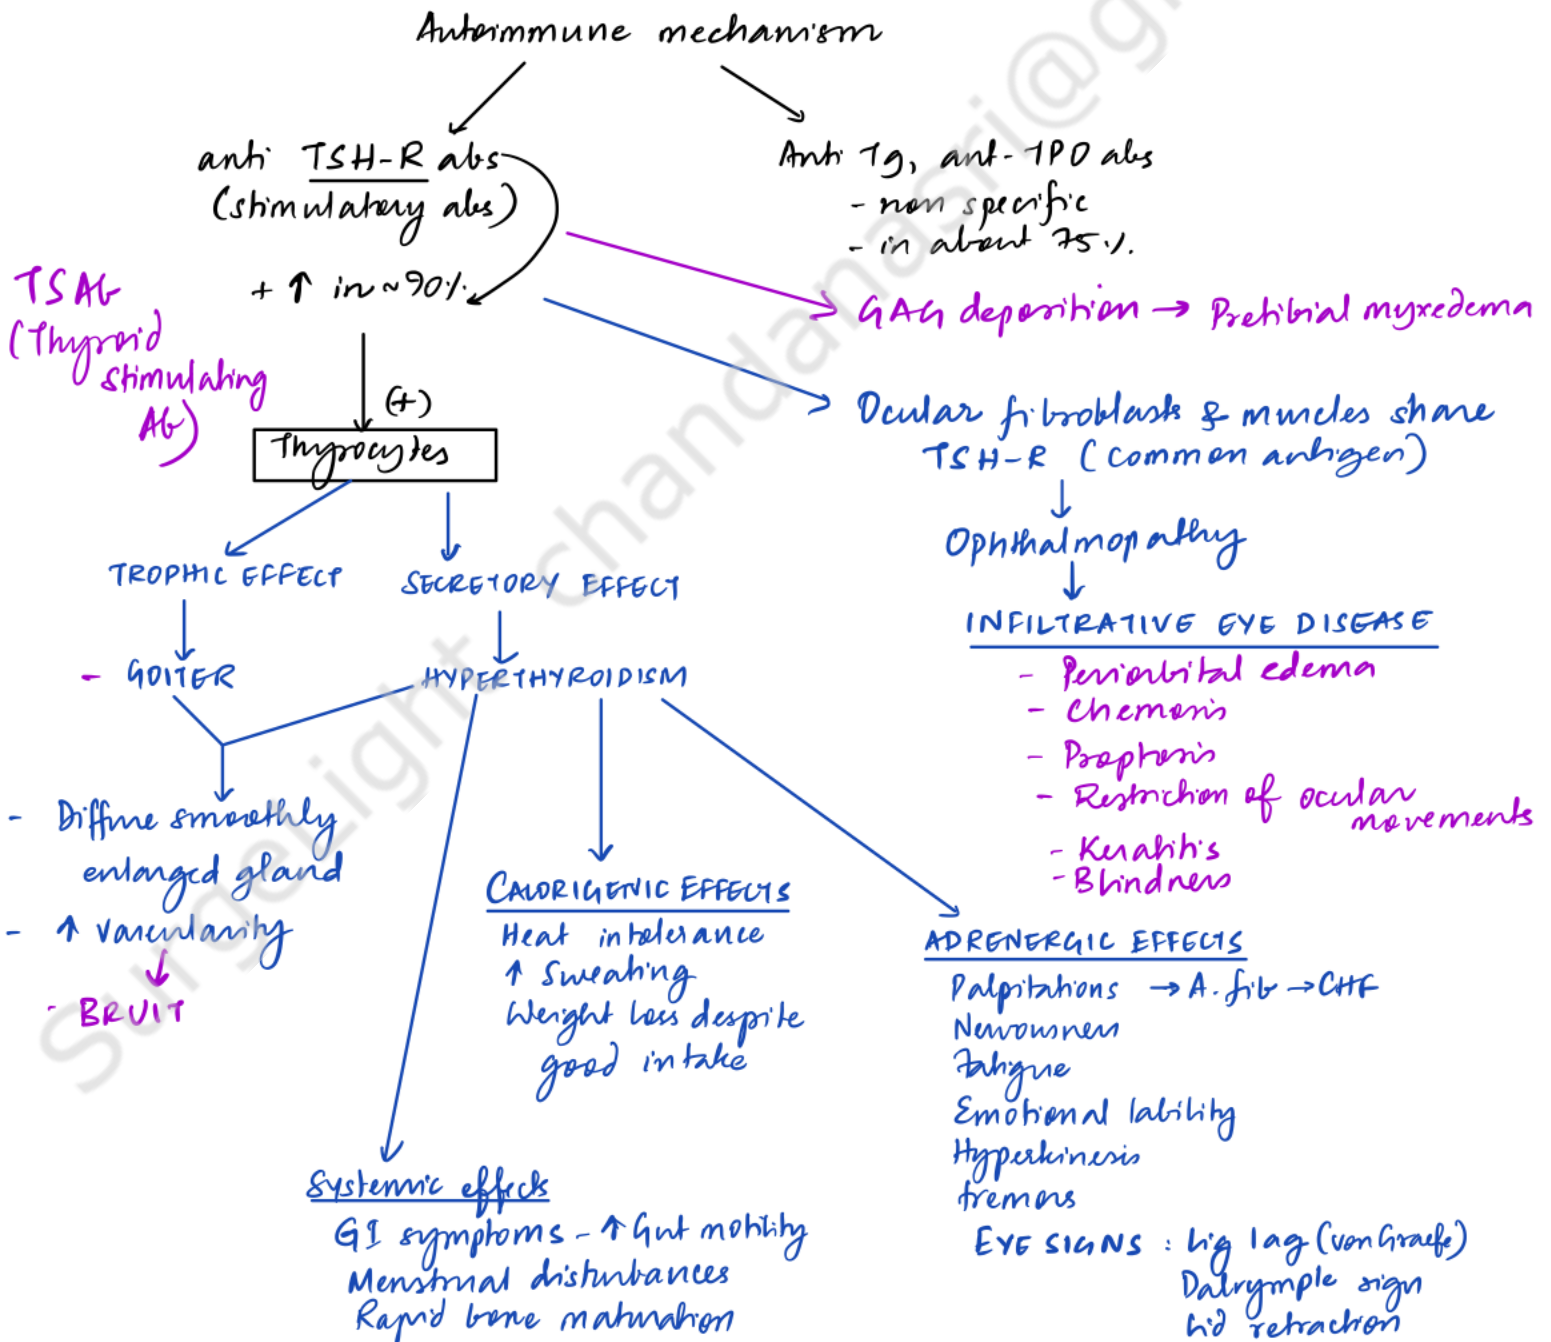 Autoimmune mechanism
anti TSH-R abs
(stimulatory abs)
+ ↑ in ~90%
Anti Tg, ant-TPO abs
- non specific
- in about 75%.
TSAb
(Thyroid
stimulating
Ab)
GAG deposition → Pretibial myxedema
(+)
Thyrocytes
Ocular fibroblasts & muscles share
TSH-R (common antigen)
Ophthalmopathy
INFILTRATIVE EYE DISEASE
- Periorbital edema
- Chemosis
- Proptosis
- Restriction of ocular
movements
- Keratitis
- Blindness
TROPHIC EFFECT
SECRETORY EFFECT
- GOITER
HYPERTHYROIDISM
- Diffuse smoothly
enlarged gland
- ↑ Vascularity
- BRUIT
CALORIGENIC EFFECTS
Heat intolerance
↑ Sweating
Weight loss despite
good intake
ADRENERGIC EFFECTS
Palpitations → A. fib → CHF
Nervousness
Fatigue
Emotional lability
Hyperkinesis
tremors
EYE SIGNS : Lig lag (von Graefe)
Dalrymple sign
Lid retraction
Systemic effects
GI symptoms - ↑ Gut motility
Menstrual disturbances
Rapid bone maturation
SurgeLight chandanasri@g